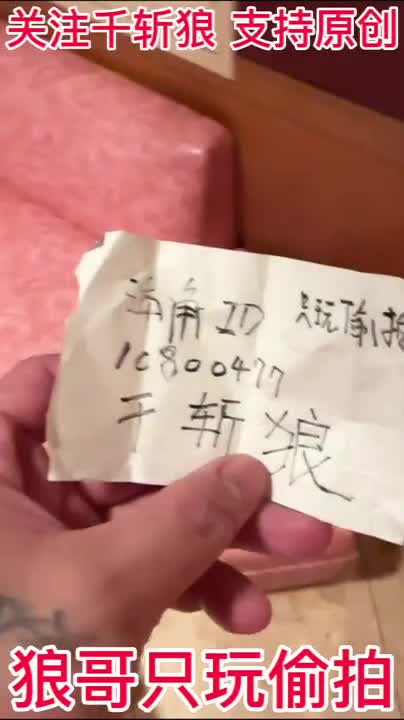 关注千斩狼 支持原创
海角ID 只玩偷拍
10800477
千斩狼
狼哥只玩偷拍